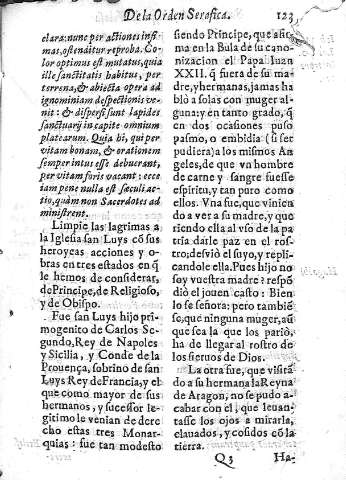 De la Orden Serafica. 123
clara: nunc per actiones infi-
mas, ostenditur reproba. Co-
lor optimus est mutatus, quia
ille sanctitatis habitus, per
terrena, & abiecta opera ad
ignominiam despectionis ve-
nit: & dispersi sunt lapides
sanctuarij in capite omnium
platearum. Quia hi, qui per
vitam bonam, & orationem
semper intus esse debuerant,
per vitam foris vacant: ecce
iam pene nulla est sæculi ac-
tio, quàm non Sacerdotes ad
ministrent.
Limpie las lagrimas a
la Iglesia san Luys cõ sus
heroycas acciones y o-
bras en tres estados en q̃
le hemos de considerar,
de Principe, de Religioso,
y de Obispo.
Fue san Luys hijo pri-
mogenito de Carlos Se-
gundo, Rey de Napoles
y Sicilia, y Conde de la
Prouença, sobrino de san
Luys Rey de Francia, y el
que como mayor de sus
hermanos, y sucessor le-
gitimo le venian de dere-
cho estas tres Monar-
quias: fue tan modesto
siendo Principe, que afir-
ma en la Bula de su cano-
nizacion el Papa Iuan
XXII. q̃ fuera de su ma-
dre, y hermanas, jamas ha
blò a solas con muger al-
guna: y en tanto grado, q̃
en dos ocasiones puso
pasmo, o embidia (si ser
pudiera) a los mismos An
geles, de que vn hombre
de carne y sangre fuesse
espiritu, y tan puro como
ellos. Vna fue, que vinien
do a ver a su madre, y que
riendo ella al vso de la pa
tria darle paz en el ros-
tro, desviò el suyo, y repli-
candole ella. Pues hijo no
soy vuestra madre? respõ
diò el jouen casto: Bien
lo se señora: pero tambiẽ
se, que ninguna muger, aũ
que sea la que los pariò,
ha de llegar al rostro de
los sieruos de Dios.
La otra fue, que visitã
do a su hermana la Reyna
de Aragon, no se pudo a-
cabar con èl, que leuan-
tasse los ojos a mirarla,
clauados, y cosidos cõ la
tierra.
Q 3 Ha-